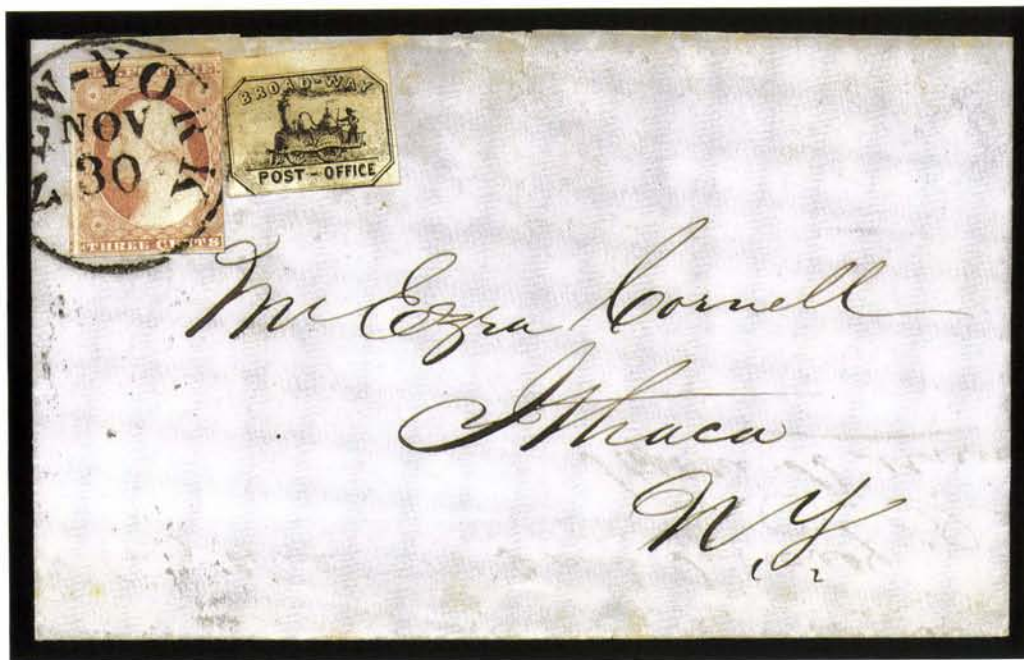 NEW-YORK
NOV
30
THREE CENTS
BROAD-WAY
POST-OFFICE
Mr Ezra Cornell
Ithaca
N.Y.